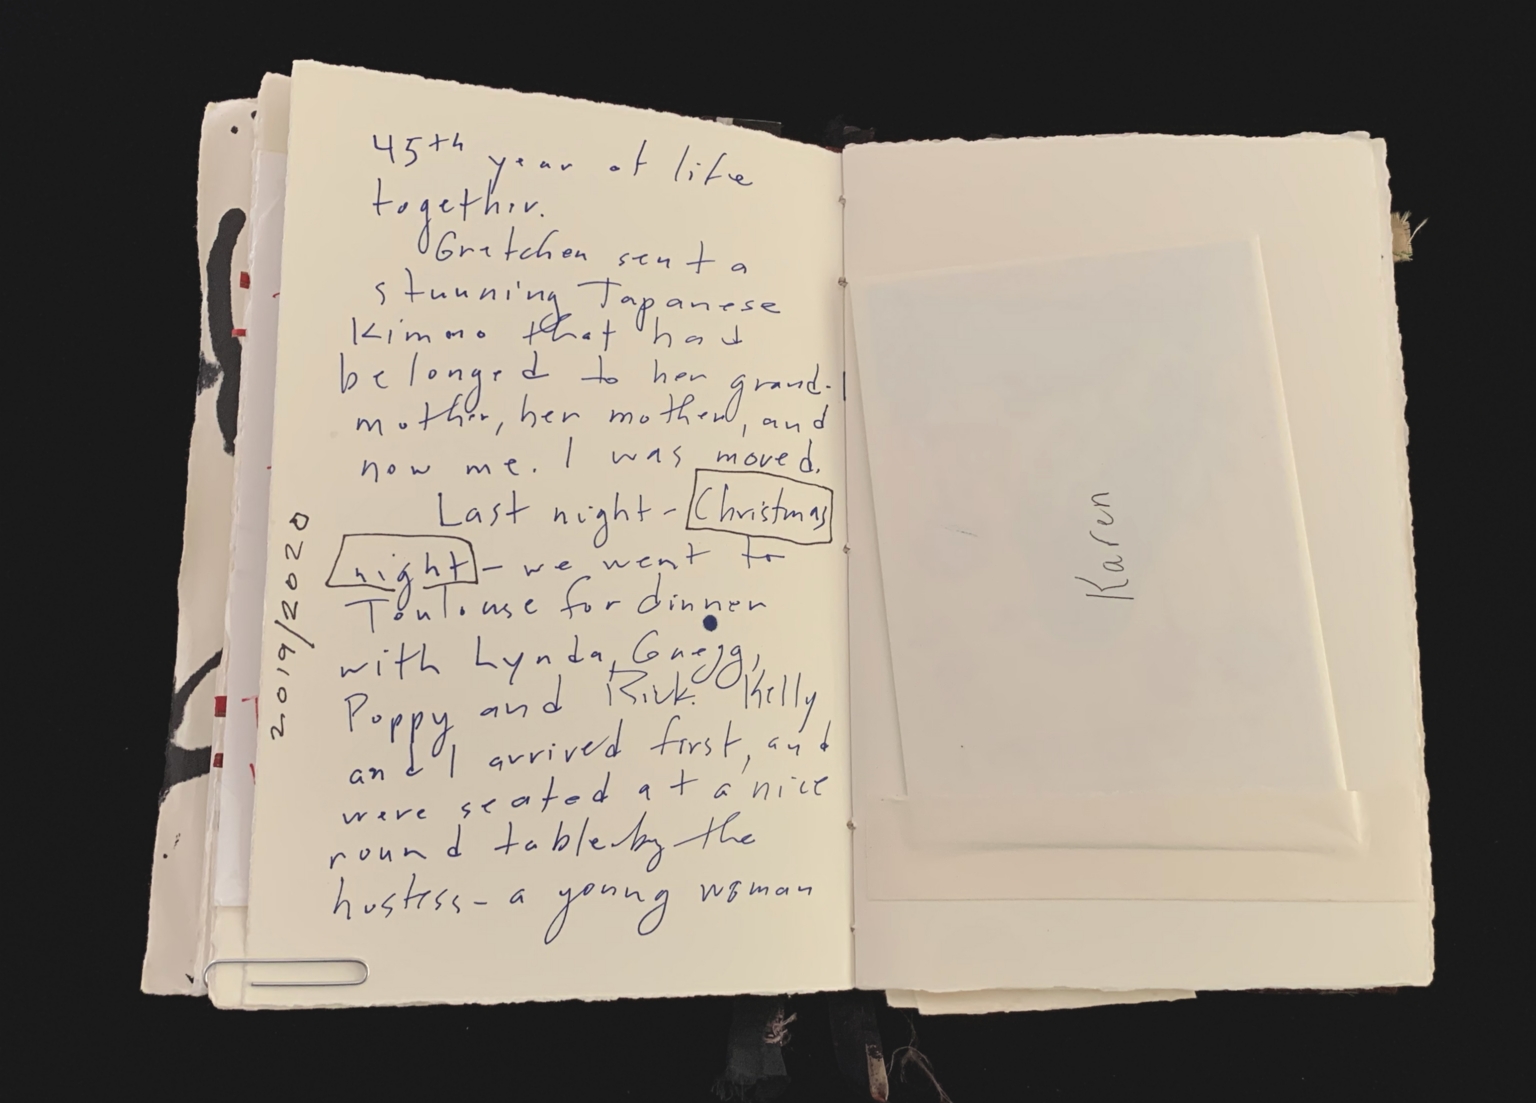 45th year of life
together.
Gretchen sent a
stunning Japanese
Kimono that had
belonged to her grand-
mother, her mother, and
now me. I was moved.
Last night - Christmas
night - we went to
Toulouse for dinner
with Lynda, Gregg,
Poppy and Rick. Kelly
and I arrived first, and
were seated at a nice
round table by the
hostess - a young woman
2019/2020
Karen